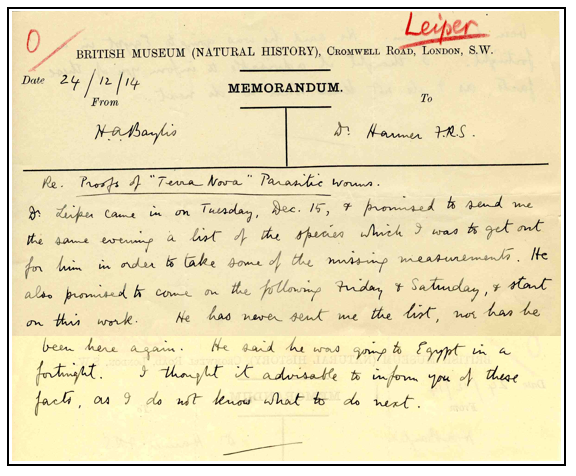 O
Leiper
BRITISH MUSEUM (NATURAL HISTORY), CROMWELL ROAD, LONDON, S.W.
Date 24/12/14
MEMORANDUM.
From
To
H.A. Baylis
Dr. Harmer F.R.S.
Re. Proofs of "Terra Nova" Parasitic Worms.
Dr. Leiper came in on Tuesday, Dec. 15, & promised to send me
the same evening a list of the species which I was to get out
for him in order to take some of the missing measurements. He
also promised to come on the following Friday & Saturday, & start
on this work. He has never sent me the list, nor has he
been here again. He said he was going to Egypt in a
fortnight. I thought it advisable to inform you of these
facts, as I do not know what to do next.